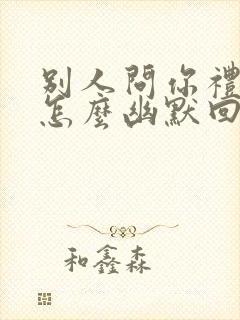 別人問你禮
怎麼幽默回
和鑫森